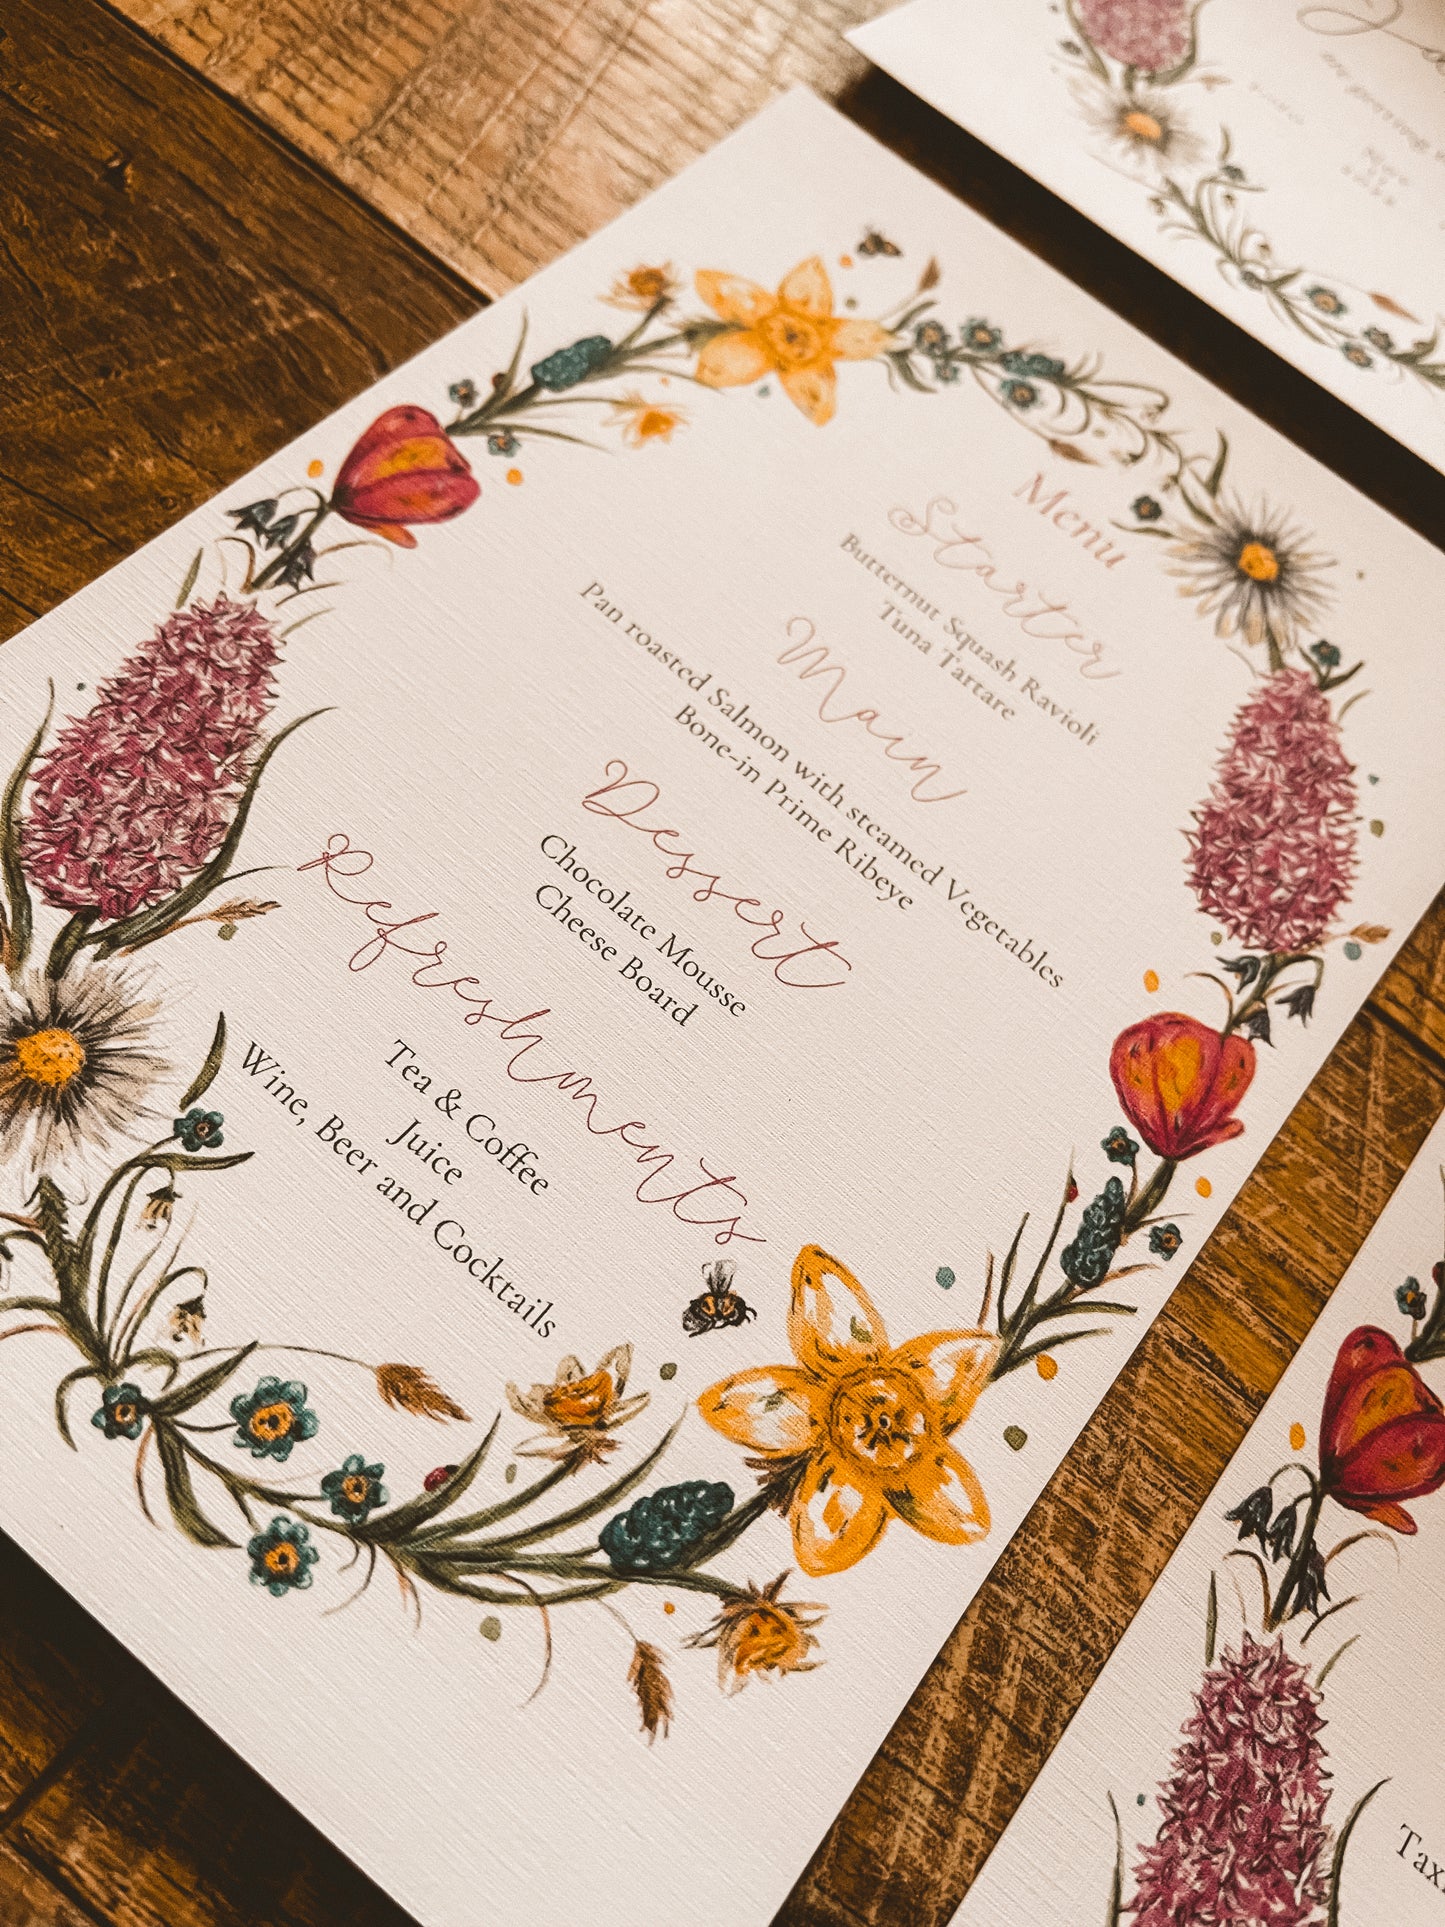 Menu
Starter
Butternut Squash Ravioli
Tuna Tartare
Main
Pan roasted Salmon with steamed Vegetables
Bone-in Prime Ribeye
Dessert
Chocolate Mousse
Cheese Board
Refreshments
Tea & Coffee
Juice
Wine, Beer and Cocktails